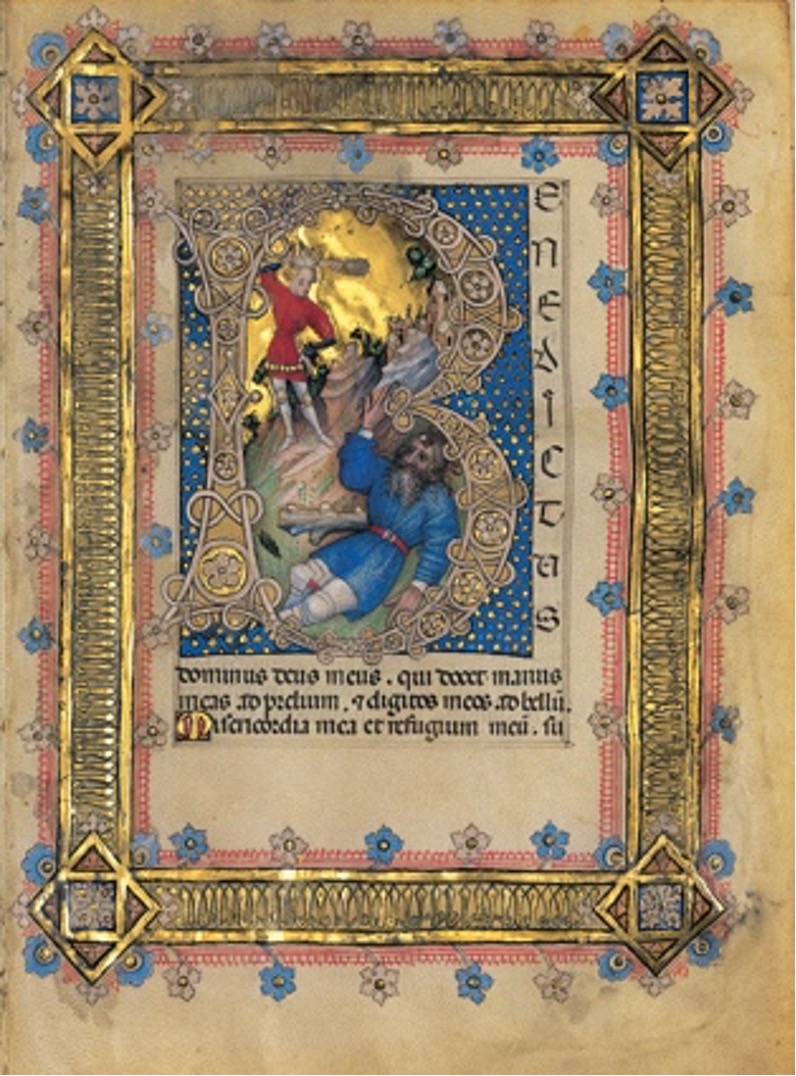 BENEDICTUS
dominus deus meus . qui docet manus
meas ad prelium . ⁊ digitos meos ad bellū.
Misericordia mea et refugium meū . su